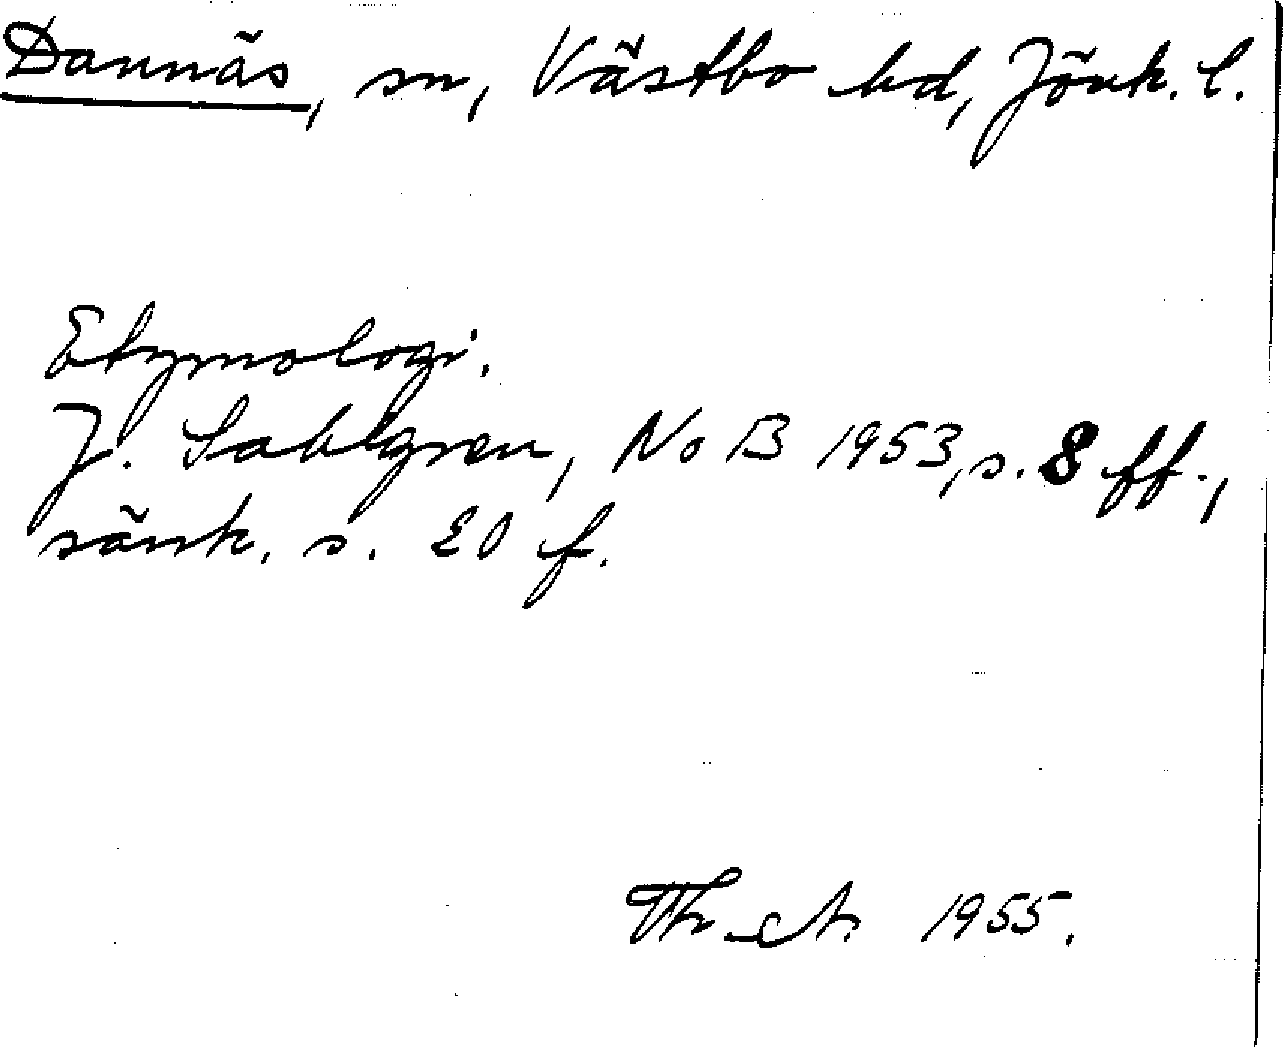 Dannäs, sn, Västbo hd, Jönk. l.
Etymologi.
J. Sahlgren, NoB 1953, s. 8 ff.,
särsk. s. 20 f.
1955.